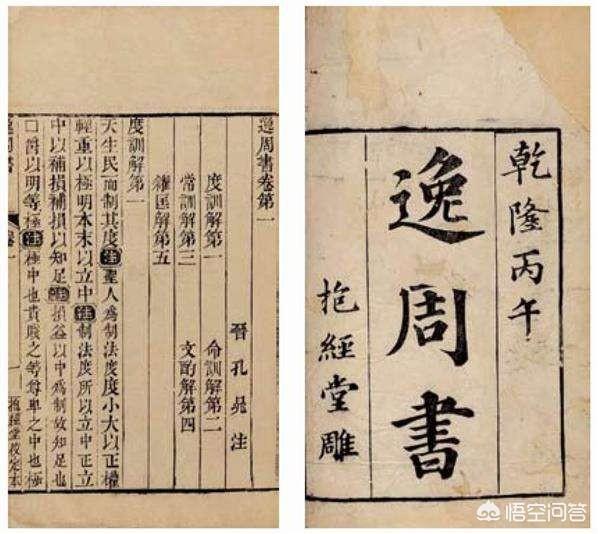 乾隆丙午
逸周書
抱經堂雕
逸周書卷第一
晉孔晁注
度訓解第一 命訓解第二
常訓解第三 文酌解第四
糴匡解第五
度訓解第一
天生民而制其度注聖人爲制法度度小大以正權
輕重以極明本末以立中注制法度所以立中正立
中以補損補損以知足注損益以中爲制故知足也
□爵以明等極注極中也貴賤之等尊卑之中也極
卷一 一 抱經堂校定本
悟空问答